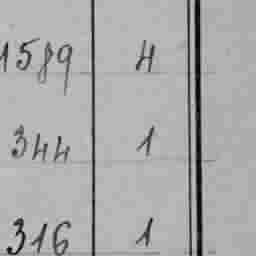 1589 4
344 1
316 1